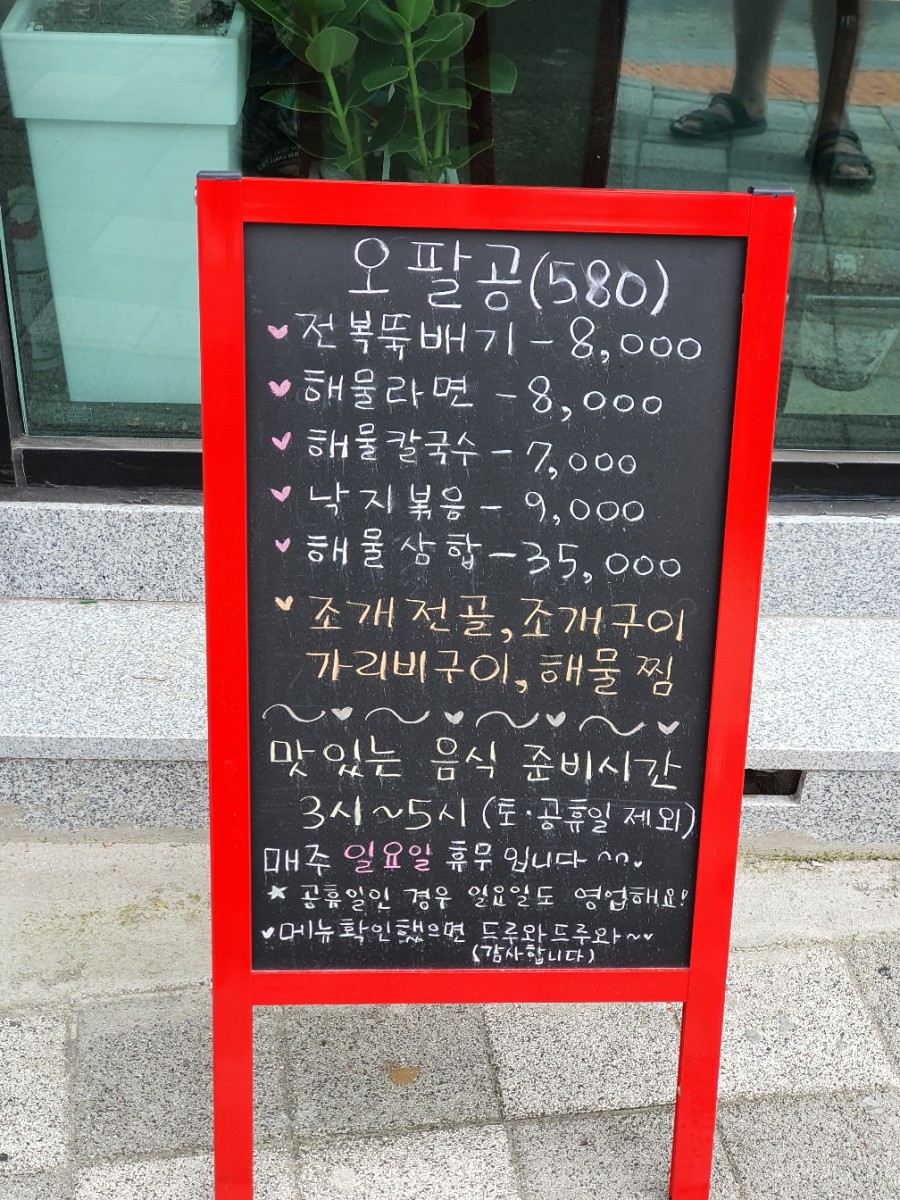 오팔공(580)
전복뚝배기 - 8,000
해물라면 - 8,000
해물칼국수 - 7,000
낙지볶음 - 9,000
해물삼합 - 35,000
조개전골, 조개구이
가리비구이, 해물찜
맛있는 음식 준비시간
3시~5시 (토·공휴일 제외)
매주 일요일 휴무입니다 ^^
★ 공휴일인 경우 일요일도 영업해요!
메뉴확인했으면 드루와드루와~
(감사합니다)